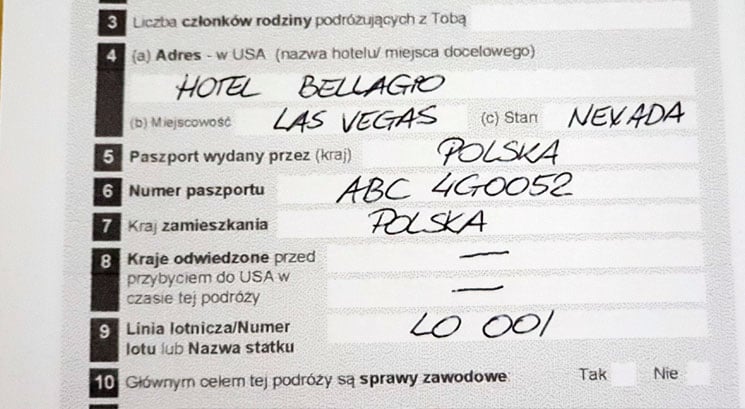 3 Liczba członków rodziny podróżujących z Tobą
4 (a) Adres - w USA (nazwa hotelu/ miejsca docelowego)
HOTEL BELLAGIO
(b) Miejscowość LAS VEGAS (c) Stan NEVADA
5 Paszport wydany przez (kraj) POLSKA
6 Numer paszportu ABC 4G0052
7 Kraj zamieszkania POLSKA
8 Kraje odwiedzone przed —
przybyciem do USA w
czasie tej podróży —
9 Linia lotnicza/Numer LO 001
lotu lub Nazwa statku
10 Głównym celem tej podróży są sprawy zawodowe: Tak Nie